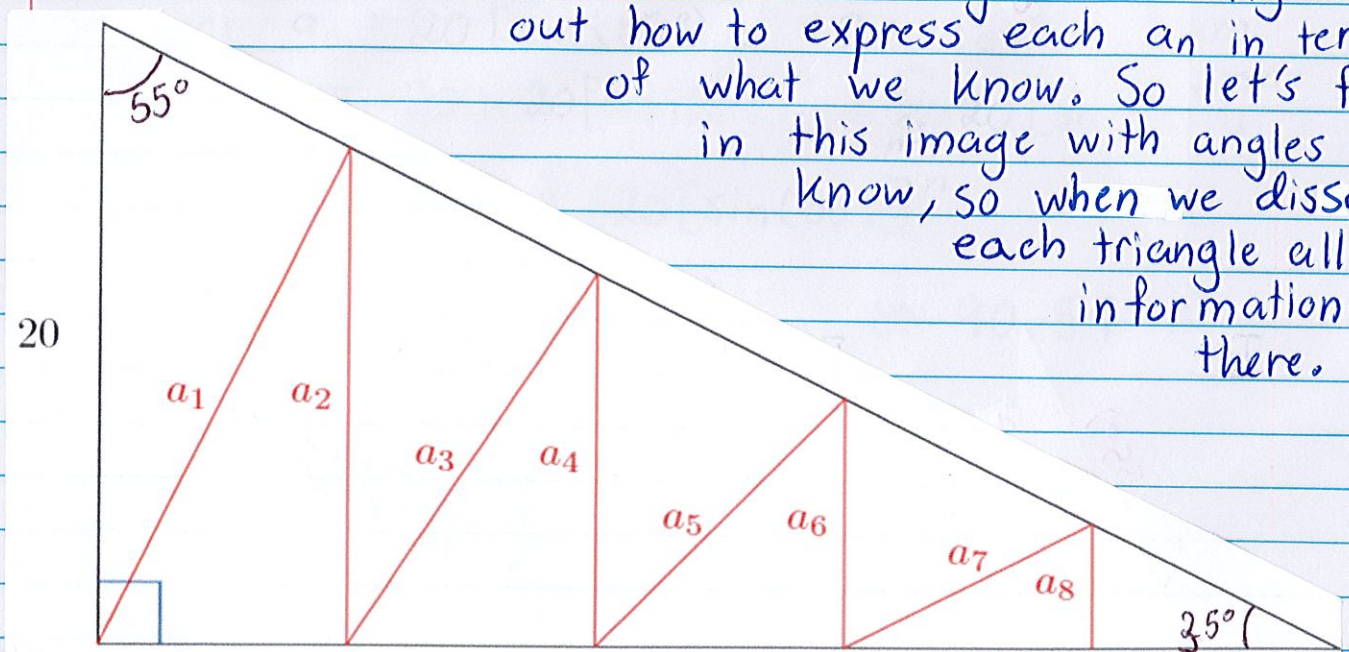 out how to express each an in ter
of what we know. So let's f
in this image with angles
know, so when we diss
each triangle all
information
there.
55°
20
a1
a2
a3
a4
a5
a6
a7
a8
35°